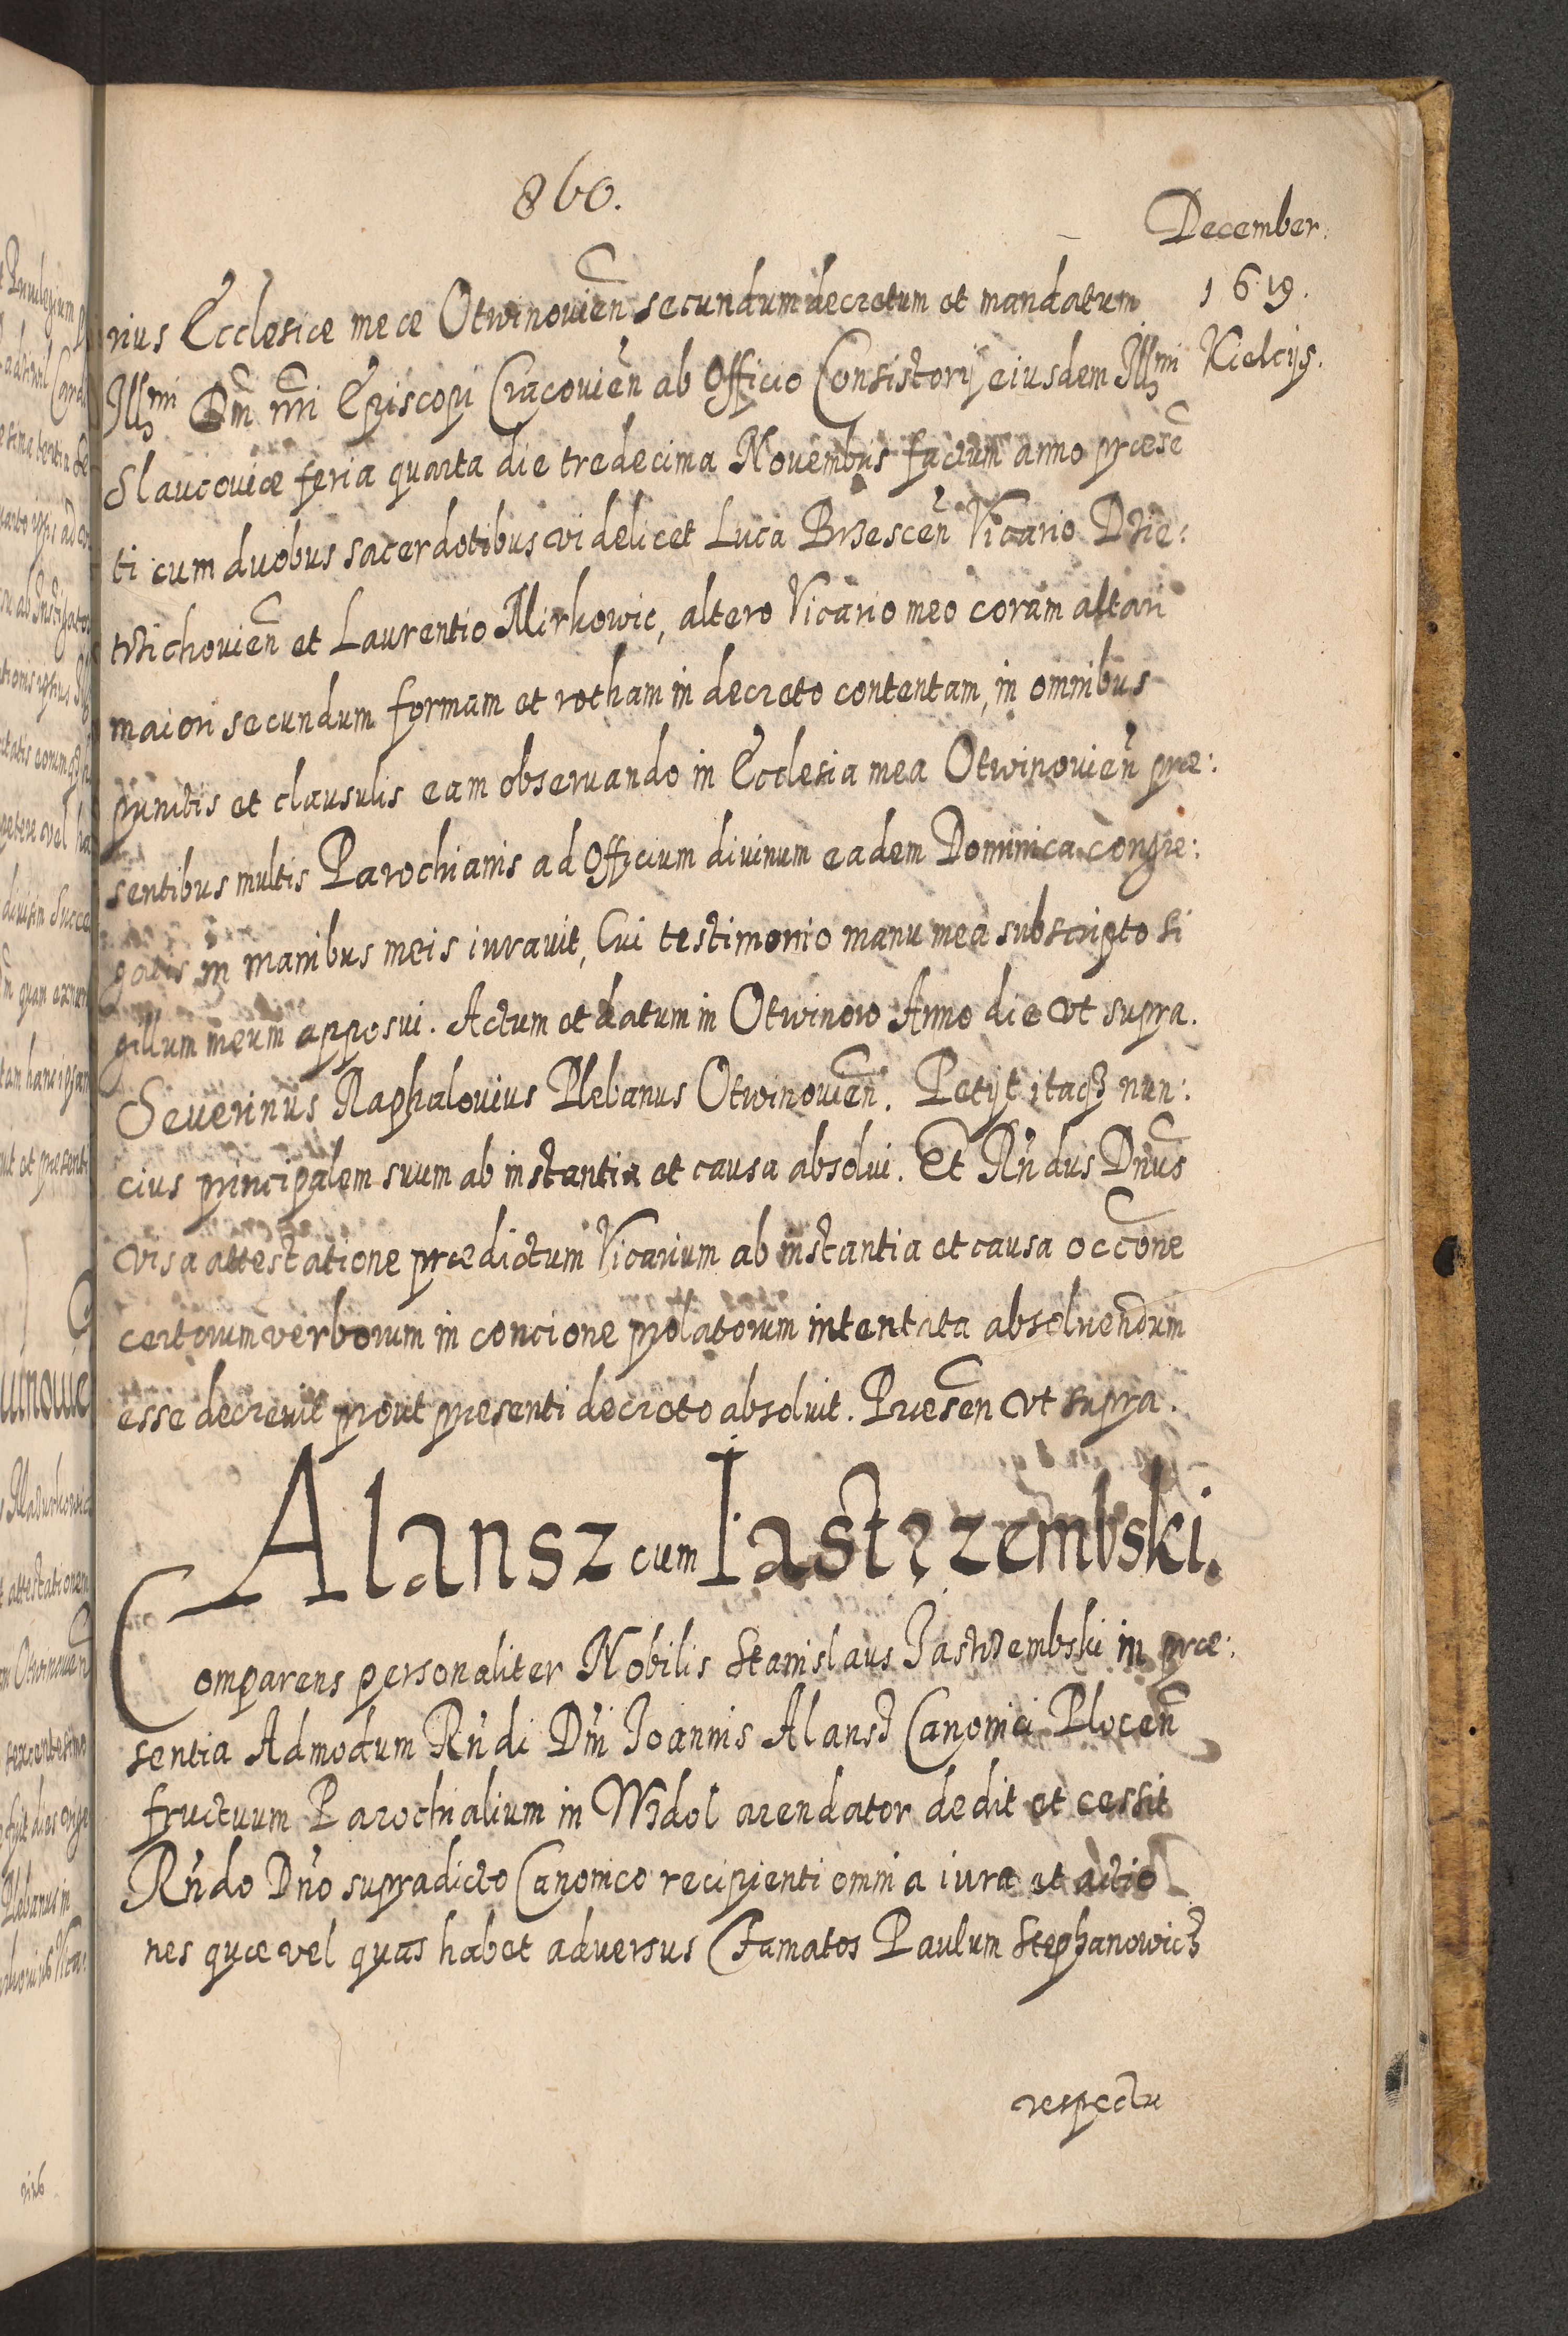 860.
December.
1619.
Kielcijs.
rius Ecclesiæ meæ Otwinouieñ secundum decretum et mandatum
Illmi Dñi nri Episcopi Cracouieñ ab Officio Consistorij eiusdem Illmi
Slaucouiæ feria quarta die tredecima Nouembris factum anno præsẽ
ti cum duobus sacerdotibus videlicet Luca Brzesceñ Vicario Dzie:
trzichouieñ et Laurentio Mirkowic, altero Vicario meo coram altari
maiori secundum formam et rotham in decreto contentam, in omnibus
punctis et clausulis eam obseruando in Ecclesia mea Otwinouieñ præ:
sentibus multis Parochianis ad Officium diuinum eadem Dominica congre:
gatis in manibus meis iurauit, Cui testimonio manu mea subscripto si
gillum meum apposui. Actum et datum in Otwinow Anno die vt supra.
Seuerinus Raphalouius Plebanus Otwinouieñ. Petijt itaqꝫ nun:
cius principalem suum ab instantia et causa absolui. Et Rñdus Dñus
visa attestatione prædictum Vicarium ab instantia et causa occõne
certorum verborum in concione prolatorum intentata absoluendum
esse decreuit prout præsenti decreto absoluit. Præseñ vt supra.
Alansz cum Iastrzembski.
Comparens personaliter Nobilis Stanislaus Jastrzembski in præ:
sentia Admodum Rñdi Dñi Joannis Alansz Canonici Ploceñ
fructuum Parochialium in Wzdol arendator dedit et cessit
Rñdo Dño supradicto Canonico recipienti omnia iura et actio
nes quæ vel quas habet aduersus Famatos Paulum Stephanowicz
respectu